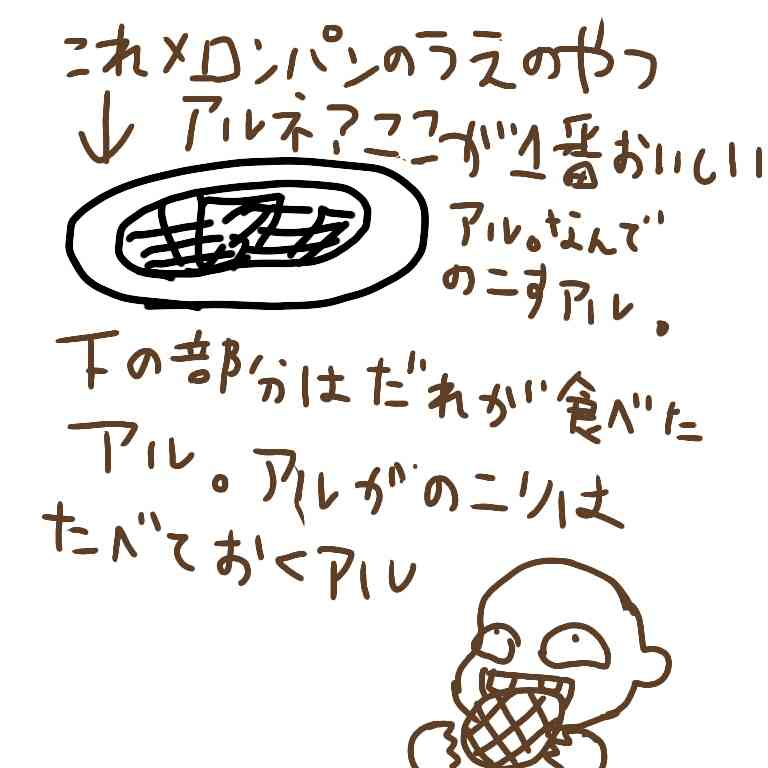 これメロンパンのうえのやつ
アルネ?ココが1番おいしい
アル。なんで
のこすアル。
下の部分はだれが食べた
アル。アルがのこりは
たべておくアル